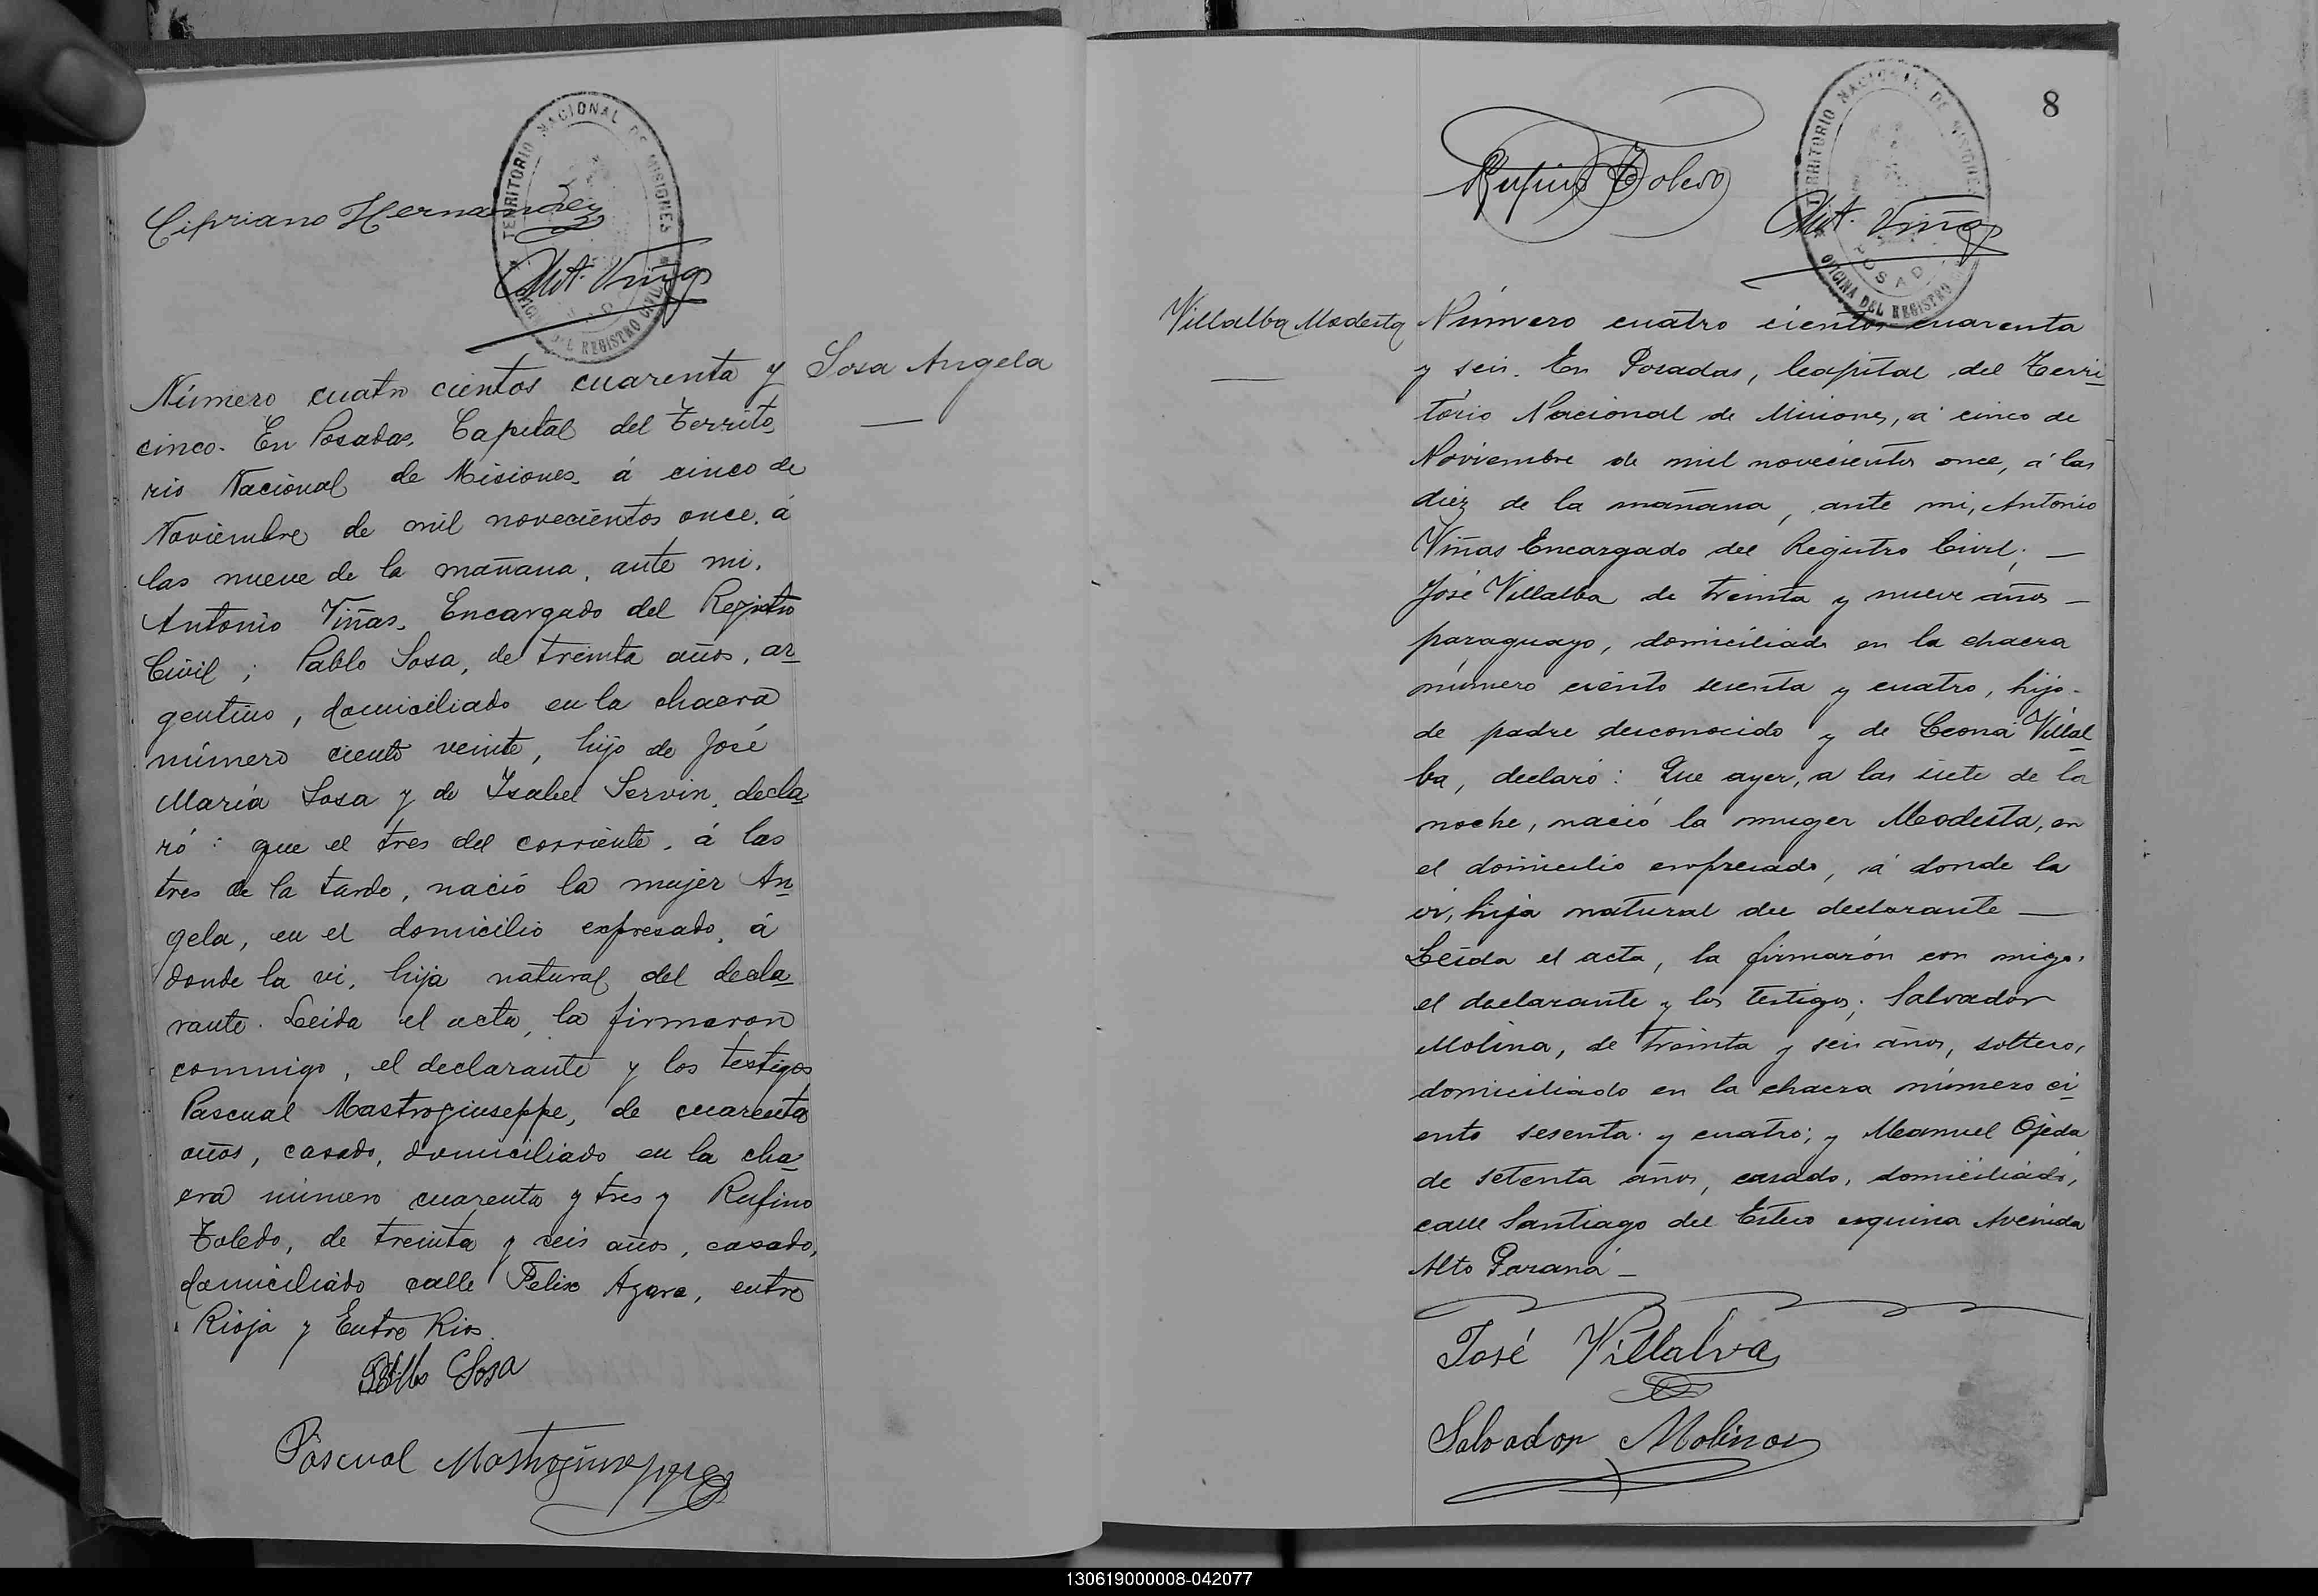 TERRITORIO NACIONAL DE MISIONES
OFICINA DEL REGISTRO CIVIL
Cipriano Hernandez
Ant. Viñas
Número cuatro cientos cuarenta y
Sosa Angela
cinco. En Posadas, Capital del Territo
rio Nacional de Misiones á cinco de
Noviembre de mil novecientos once, á
las nueve de la mañana, ante mi,
Antonio Viñas, Encargado del Registro
Civil; Pablo Sosa, de treinta años, ar
gentino, domiciliado en la chacra
número ciento veinte, hijo de José
María Sosa y de Isabel Servin, decla
ró: que el tres del corriente, á las
tres de la tarde, nació la mujer An
gela, en el domicilio expresado, á
donde la vi, hija natural del decla
rante. Leida el acta, la firmaron
conmigo, el declarante y los testigos
Pascual Mastrogiuseppe, de cuarenta
años, casado, domiciliado en la cha
cra número cuarenta y tres y Rufino
Toledo, de treinta y seis años, casado,
domiciliado calle Felix Azara, entre
Rioja y Entre Rios.
Pablo Sosa
Pascual Mastrogiuseppe
8
TERRITORIO NACIONAL DE MISIONES
POSADAS
OFICINA DEL REGISTRO
Rufino Toledo
Ant. Viñas
Villalba Modesta
Número cuatro cientos cuarenta
y seis. En Posadas, Capital del Terri
torio Nacional de Misiones, á cinco de
Noviembre de mil novecientos once, á las
diez de la mañana, ante mi, Antonio
Viñas Encargado del Registro Civil; —
José Villalba de treinta y nueve años —
paraguayo, domiciliado en la chacra
número ciento sesenta y cuatro, hijo
de padre desconocido y de Leona Villal
ba, declaró: Que ayer, a las siete de la
noche, nació la muger Modesta, en
el domicilio expresado, á donde la
vi, hija natural del declarante —
Leída el acta, la firmarón con migo,
el declarante y los testigos; Salvador
Molina, de treinta y seis años, soltero,
domiciliado en la chacra número ci
ento sesenta y cuatro; y Manuel Ojeda
de setenta años, casado, domiciliado,
calle Santiago del Estero esquina Avenida
Alto Paraná —
José Villalva
Salvador Molinas
130619000008-042077